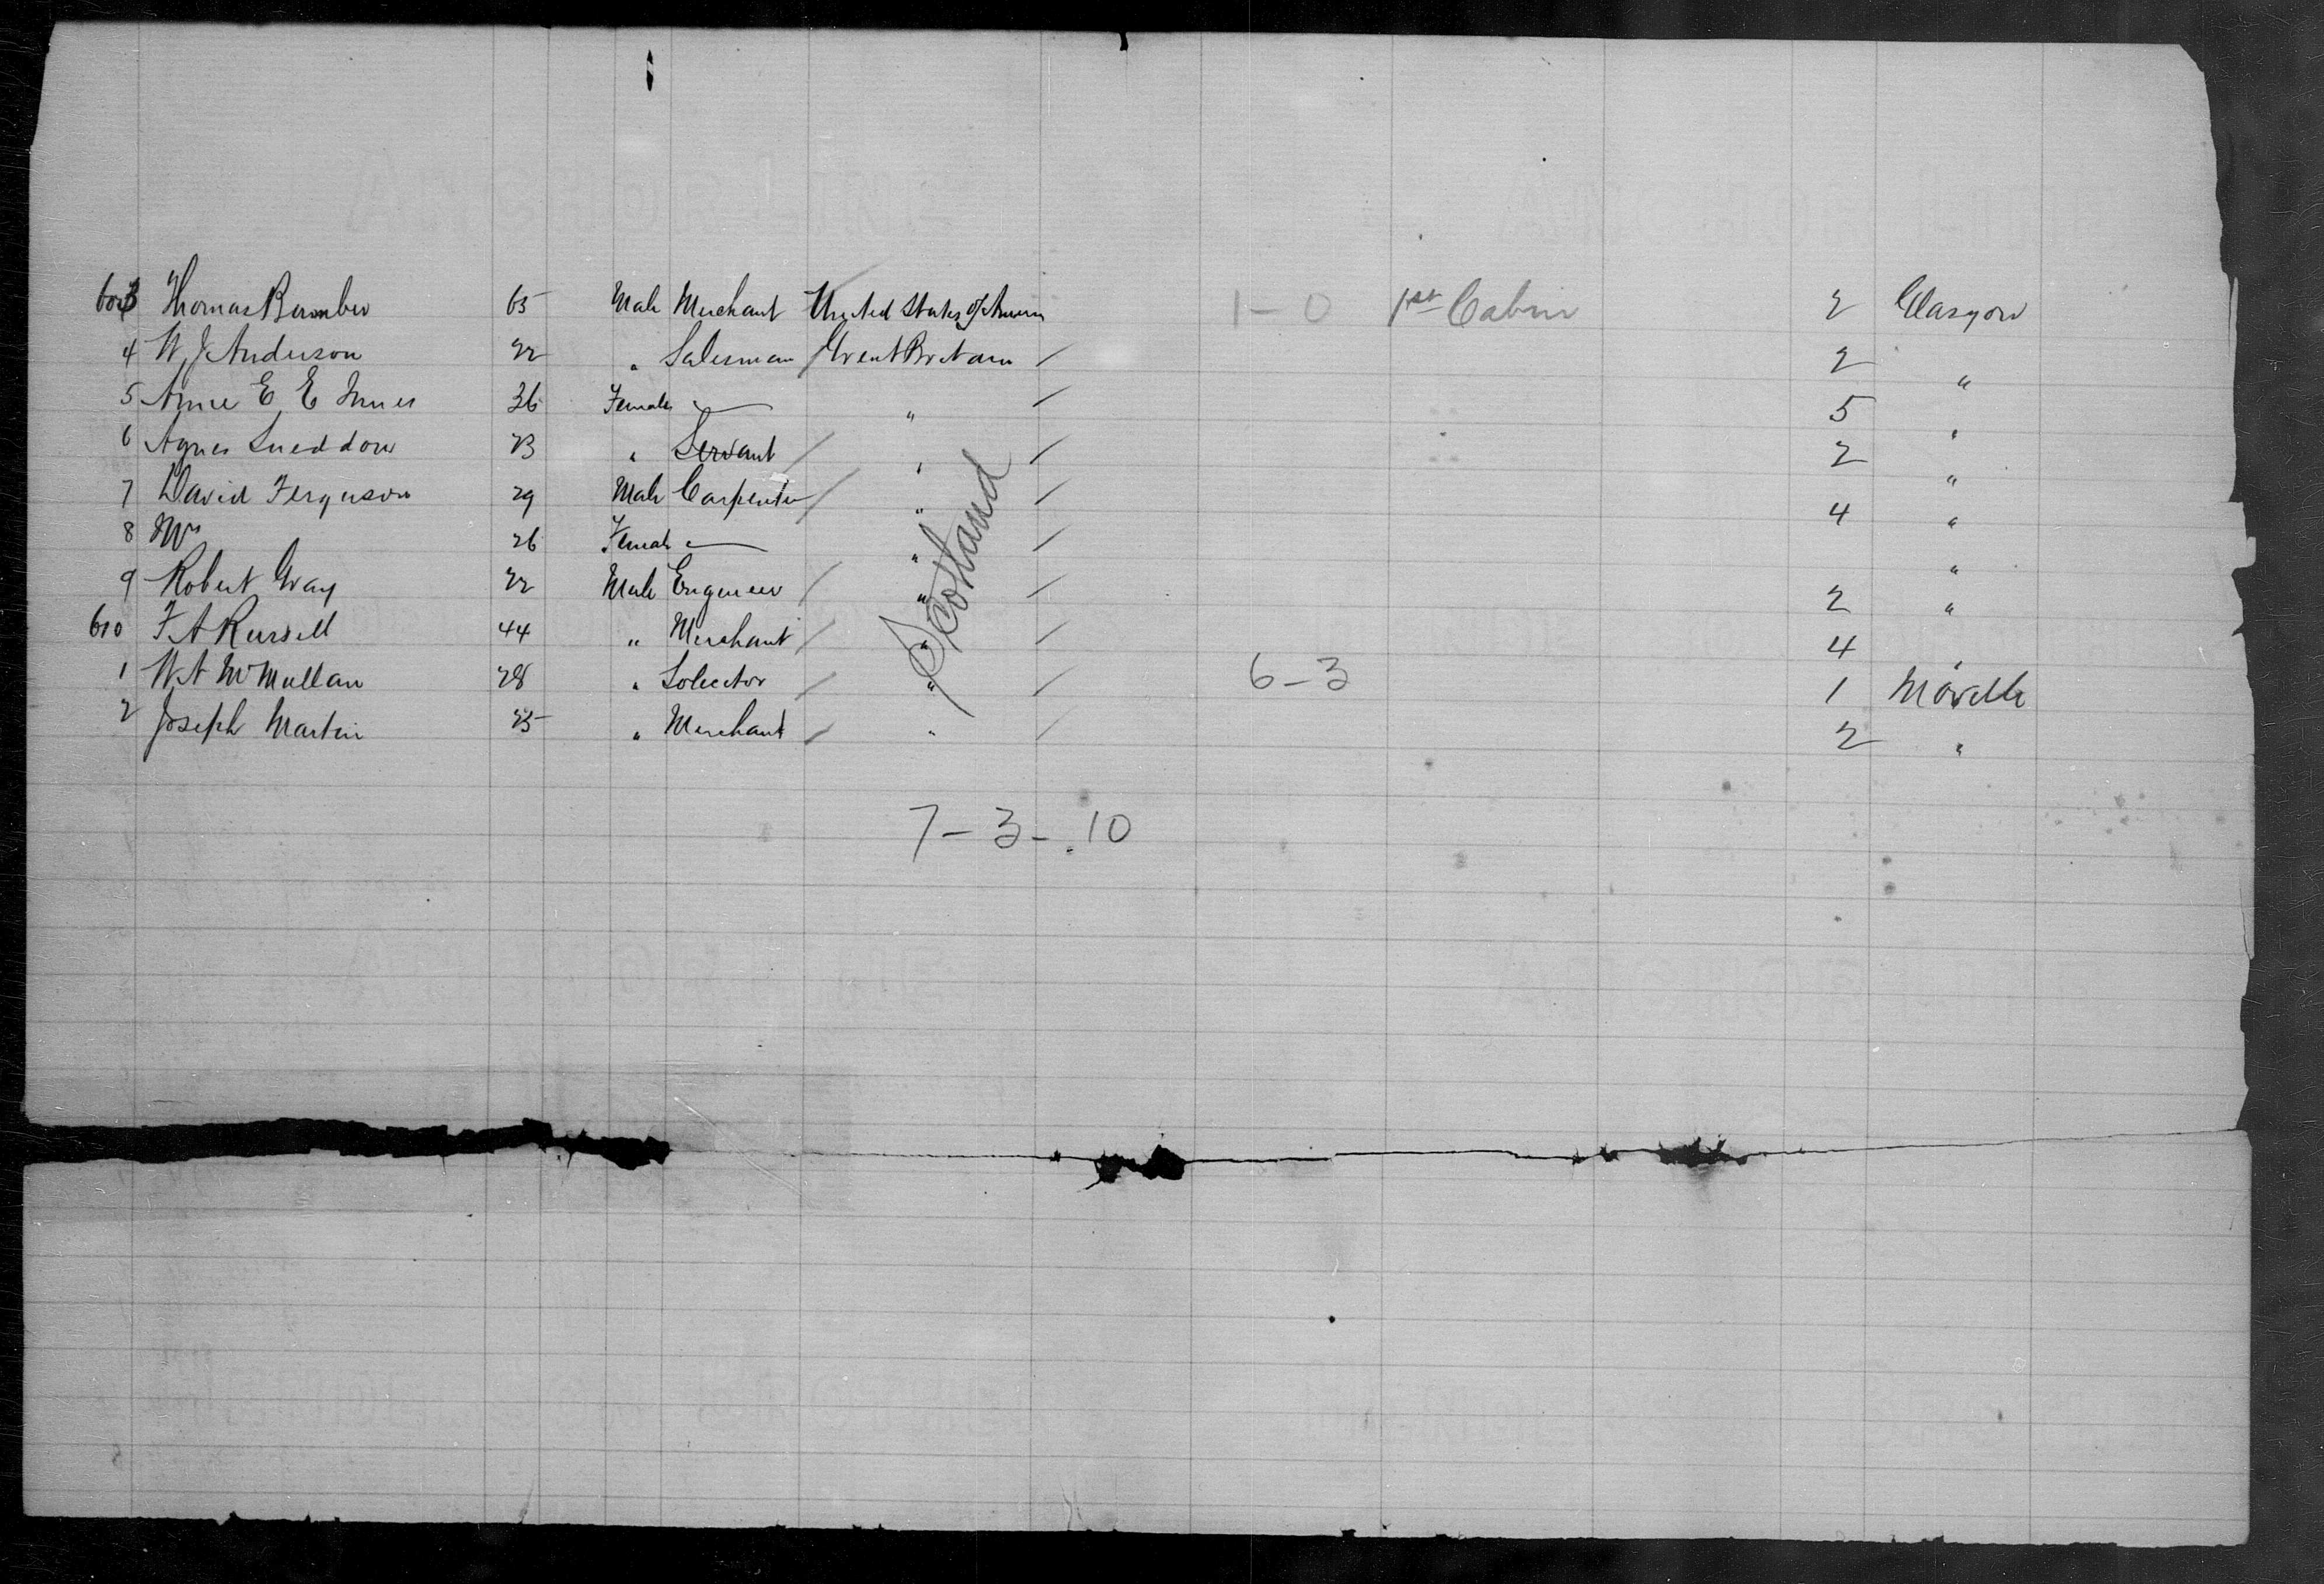 603 Thomas Bamber 65 Male Merchant United States of America 1-0 1st Cabin 2 Glasgow
4 W J Anderson 22 " Salesman / Great Britain / 2 "
5 Annie E E Innes 36 Female — " / 5 "
6 Agnes Sneddon 23 " Servant / " / 2 "
7 David Ferguson 29 Male Carpenter / " / 4 "
8 Mrs 26 Female — " / "
9 Robert Gray 22 Male Engineer / " / 2 "
610 F A Russell 44 " Merchant / " / 4 "
1 W A McMullan 28 " Solicitor / " / 6-3 1 Moville
2 Joseph Martin 25 " Merchant / " / 2 "
Scotland
7-3-10